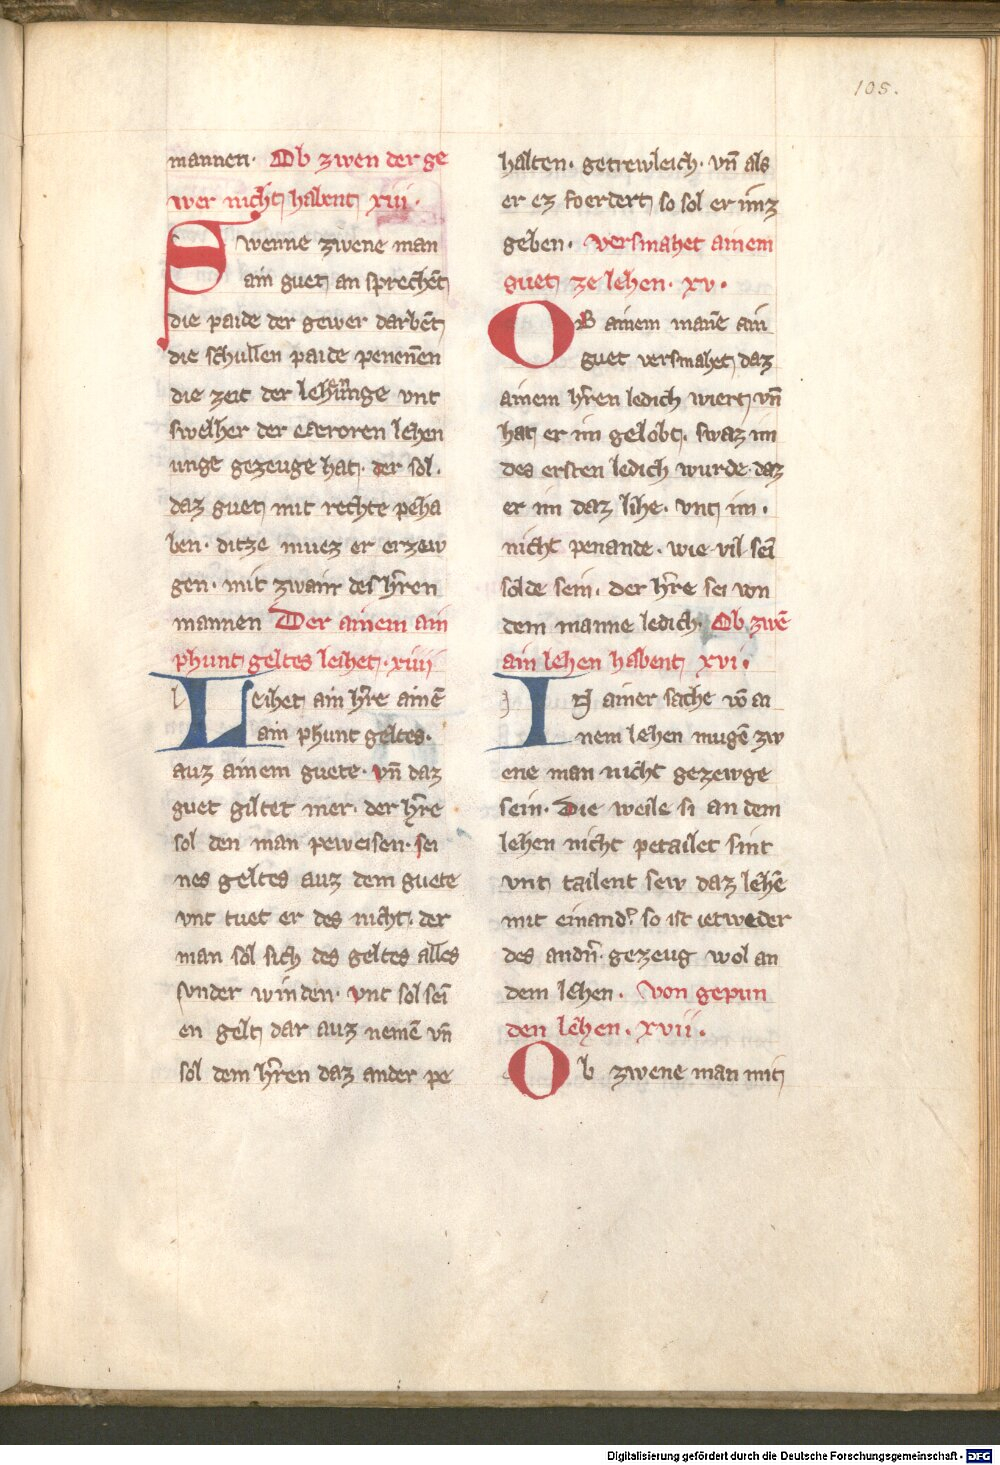 105.
mannen. Ob zwen der ge
wer nicht habent xiii.
Swenne zwene man
ain guet an sprechēt
die paide der gewer darbēt
die schullen paide penennen
die zeit der lehūnge vnt
swelher der eeroren lehen
unge gezeuge hat. der sol.
daz guet mit rechte peha
ben. ditze muez er erzew
gen. mit zwair des hr̄en
mannen Der ainem ain
phunt geltes leihet. xiiij
Leihet ain hr̄e ainē
ain phunt geltes.
auz ainem guete. vn̄ daz
guet giltet mer. der hr̄e
sol den man peweisen. sei
nes geltes auz dem guete
vnt tuet er des nicht. der
man sol sich des geltes alles
vnder winden. vnt sol sei
en gelt dar auz nemē vn̄
sol dem hr̄en daz ander pe
halten. getrewleich. vn̄ als
er ez foerdert so sol er imz
geben. versmahet ainem
guet ze lehen. xv.
OB ainem mane ain
guet versmahet daz
ainem hr̄en ledich wiert vn̄
hat er im gelobt. swaz im
des ersten ledich wurde. daz
er im daz lihe. vnt im.
nicht penande. wie vil sei
solde sein. der hr̄e sei von
dem manne ledich. Ob zwē
ain lehen habent xvi.
IN ainer sache vō ai
nem lehen mugē zw
ene man nicht gezewge
sein. Die weile si an dem
lehen nicht petailet sint
vnt tailent sew daz lehē
mit einand' so ist ietweder
des andn̄ gezeug wol an
dem lehen. von gepun
den lehen. xvii.
Ob zwene man mit
Digitalisierung gefördert durch die Deutsche Forschungsgemeinschaft - DFG